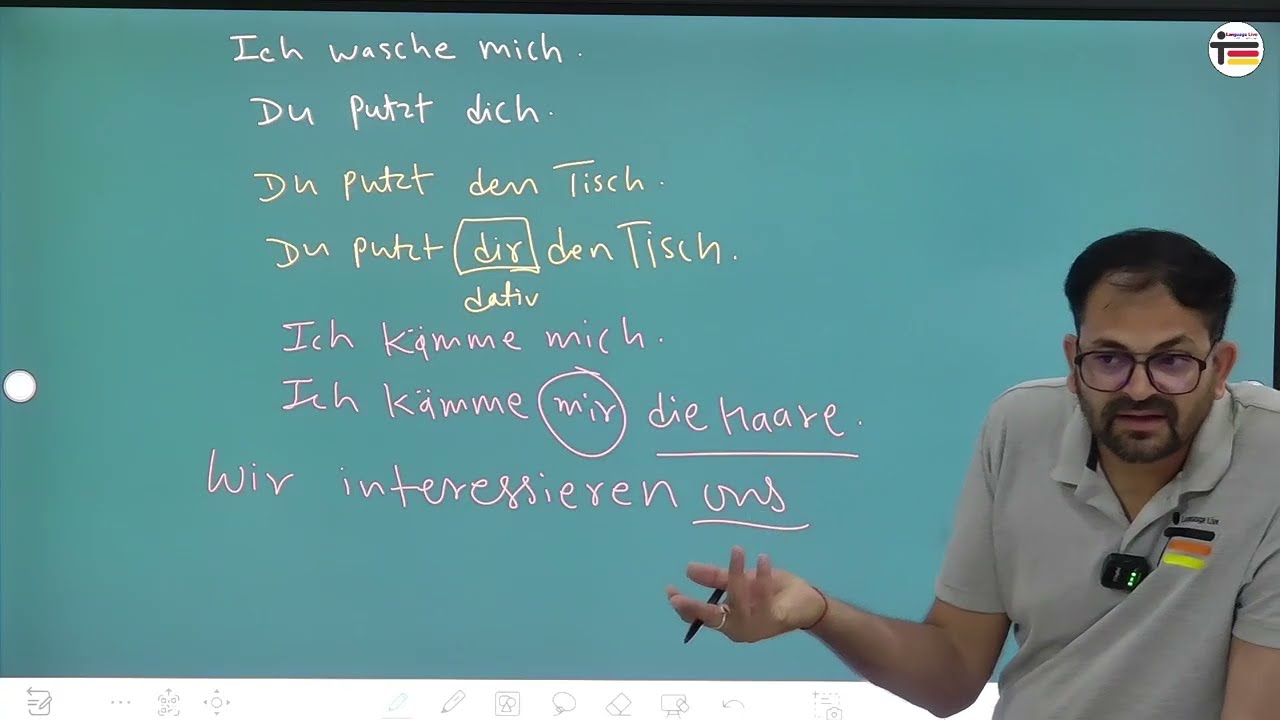 Language Live
Ich wasche mich.
Du putzt dich.
Du putzt den Tisch.
Du putzt dir den Tisch.
dativ
Ich kämme mich.
Ich kämme mir die Haare.
Wir interessieren uns
Language Live